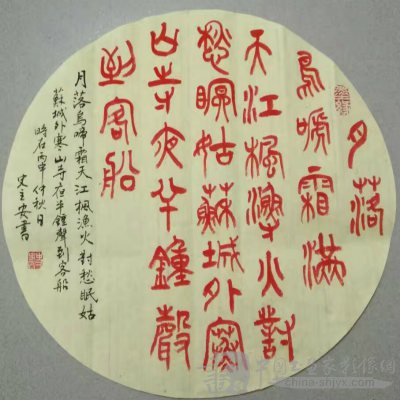 月落
烏啼霜滿
天江楓漁火對
愁眠姑蘇城外寒
山寺夜半鐘聲
到客船
月落烏啼霜天江楓漁火對愁眠姑
蘇城外寒山寺夜半鐘聲到客船
時在丙申仲秋日
史安書
中國書畫家影像網
china-shjyx.com